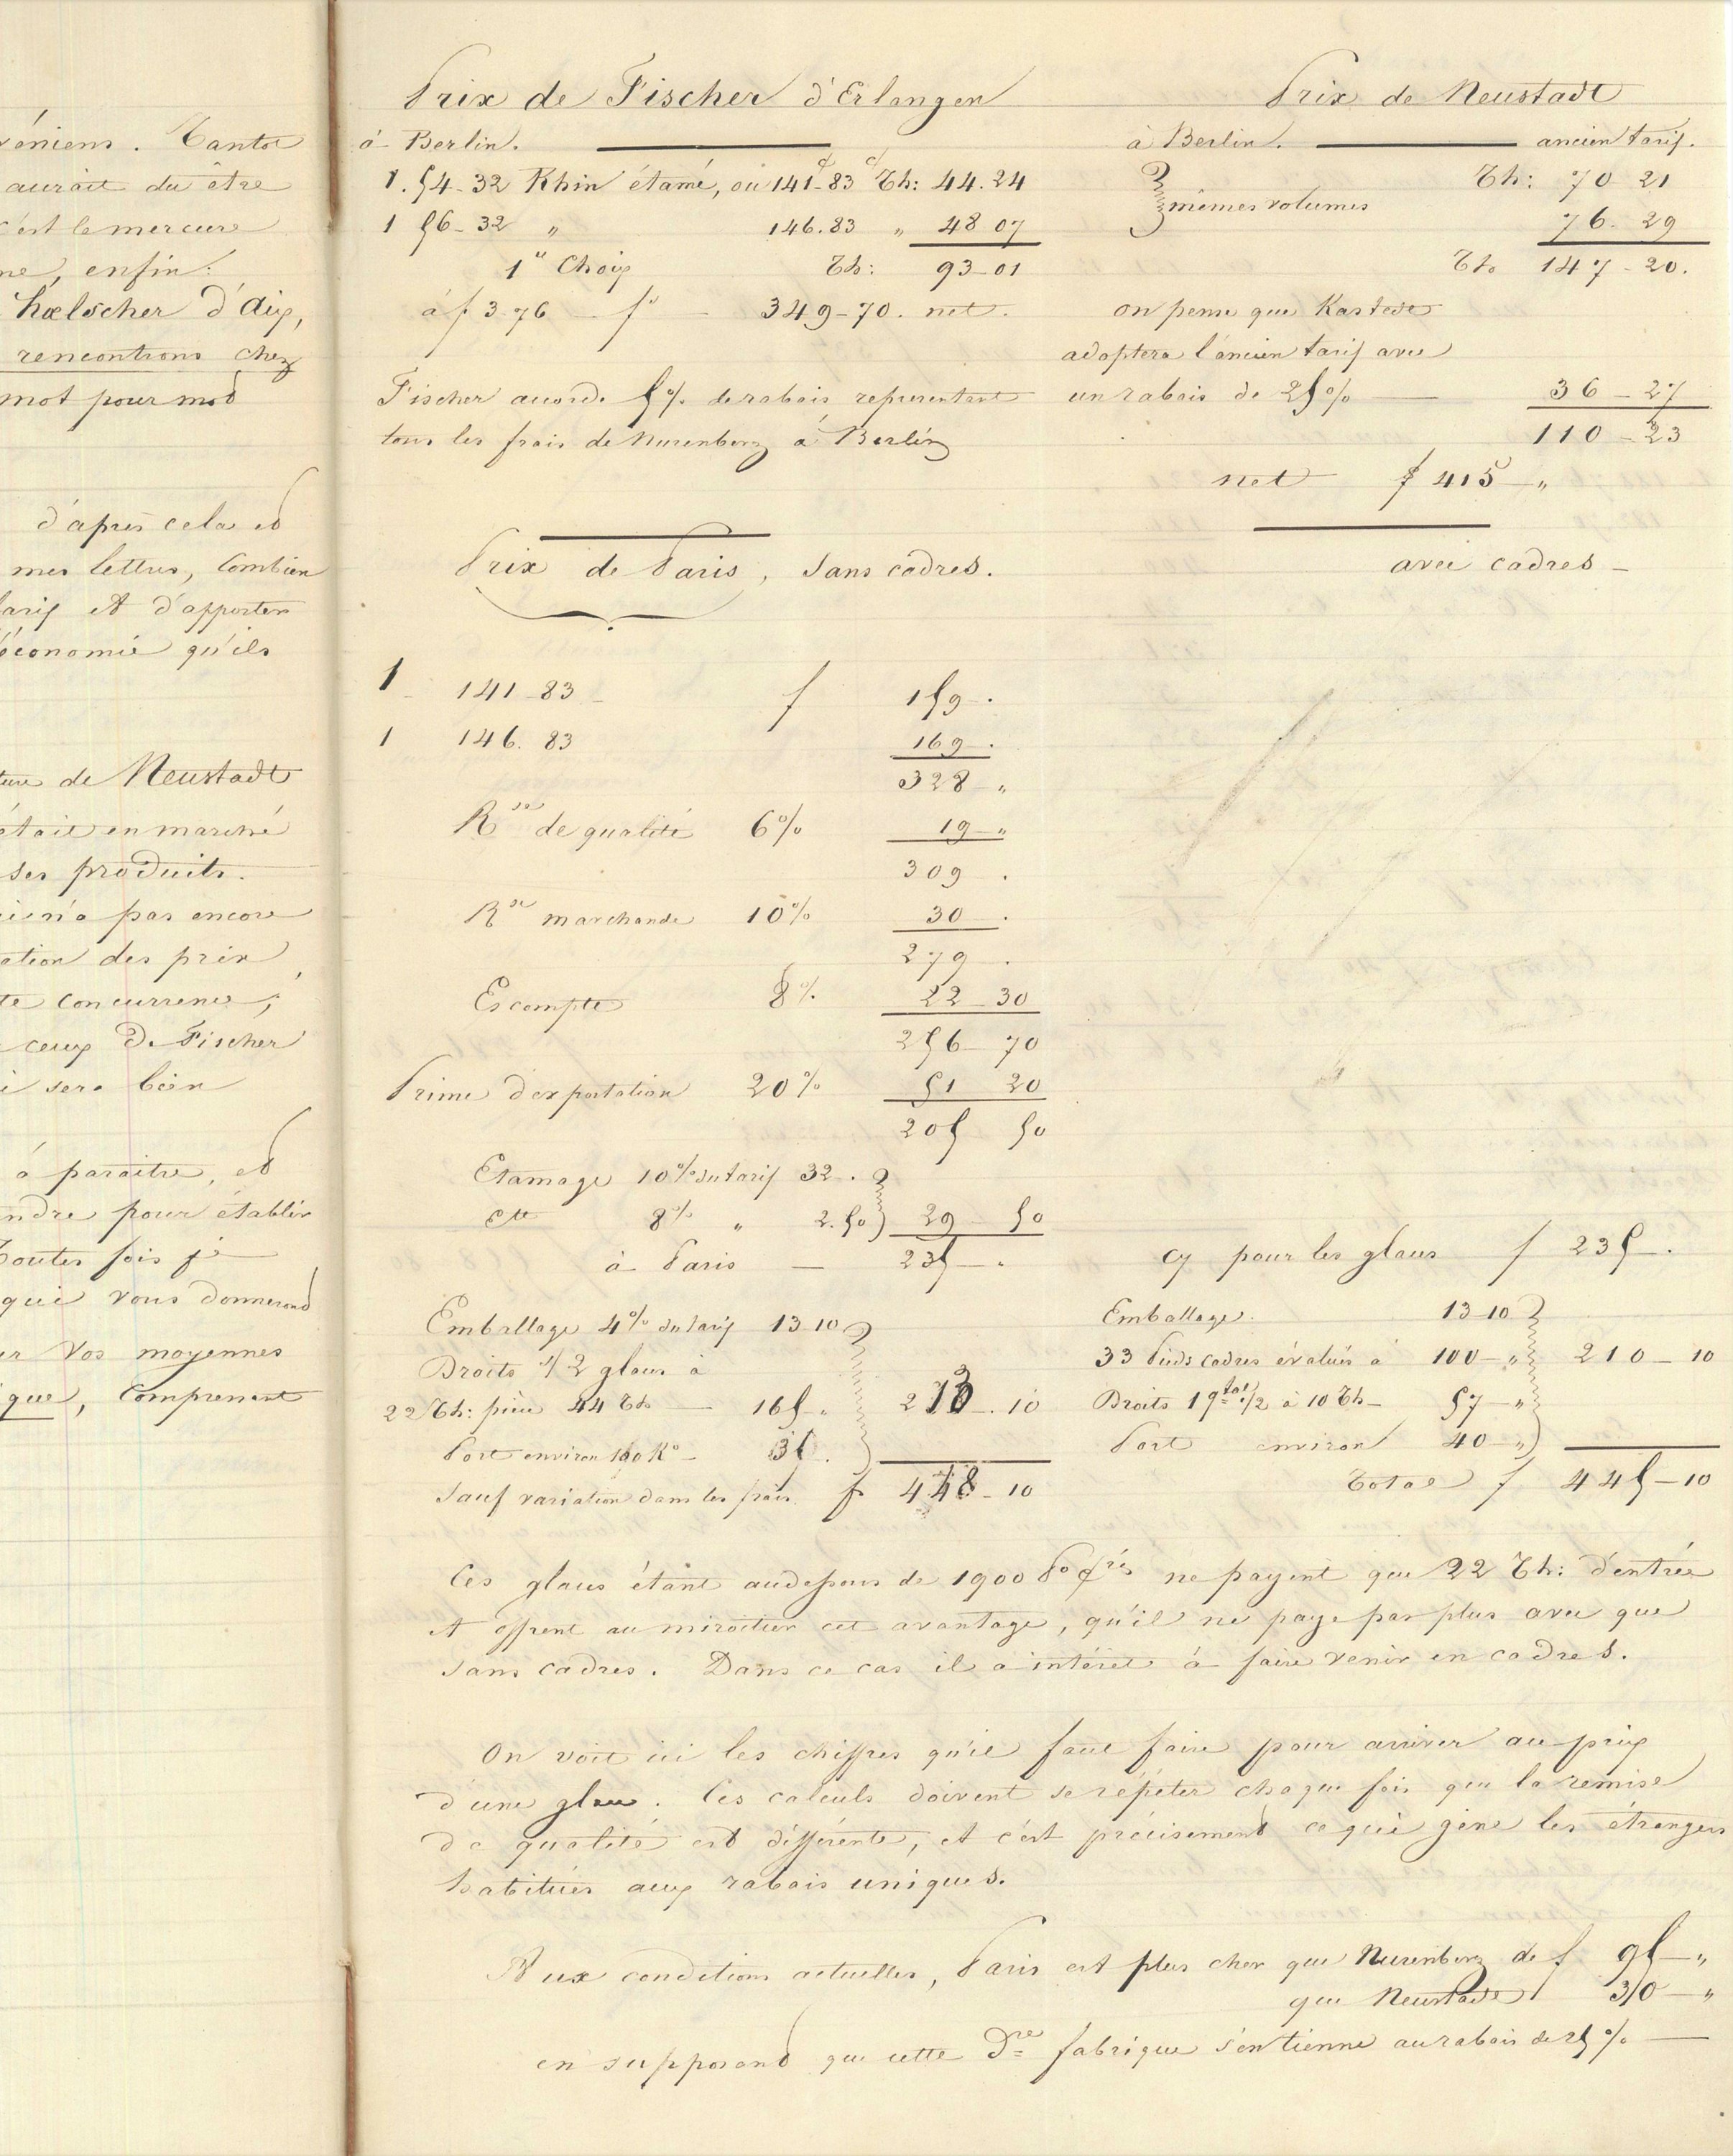 véniens. Tantot
aurait du être
c'est le mercure
me, enfin:
hœlscher d'Aix,
rencontrons chez
mot pour mot
d'après cela et
mes lettres, Combien
tarif et d'apporter
économie qu'ils
ture de Neustadt
était en marché
ses produits.
n'a pas encore
ation des prix
te concurrence,
ceux de Fischer
sera bien
à paraitre, et
ndre pour établir
Toutes fois je
qui vous donneront
er Vos moyennes
que, comprenant
Prix de Fischer d'Erlangen
à Berlin.
1. 54-32 Rhin étamé, ou 141-83 Th: 44.24
1 56-32 " 146.83 " 48 07
1er Choix Th: 93-01
à f 3.76 fs 349-70. net.
Fischer accorde 5% de rabais representant
tous les frais de Nurenberg à Berlin
Prix de Neustadt
à Berlin. ancien tarif.
mêmes volumes Th: 70 21
76. 29
Th 147-20.
on pense que Kastede
adoptera l'ancien tarif avec
un rabais de 25% 36-27
110-23
net f 415 "
Prix de Paris, sans cadres.
avec cadres
1 141-83 f 159.
1 146.83 169.
328 "
Rse de qualité 6% 19 "
309.
Rse marchande 10% 30.
279.
Escompte 8% 22-30
256-70
Prime d'exportation 20% 51 20
205 50
Etamage 10% du tarif 32.
Ette 8% " 2.50 29 50
à Paris 235.
Emballage 4% du tarif 13 10
Droits s/ 2 glaces à
22 Th: pièce 44 Th 165 " 213.10
Port environ 160 Ko 35.
Sauf variation dans les frais. f 448-10
cy pour les glaces f 235.
Emballage. 13-10
33 Pieds cadres évalués à 100 " 210-10
Droits 1 qtal 1/2 à 10 Th 57 "
Port environ 40 "
Total f 445-10
Ces glaces étant audessous de 1900 Po qrés ne payent que 22 Th: d'entrée
et offrent au miroitier cet avantage, qu'il ne paye pas plus avec que
sans cadres. Dans ce cas il a intérêt à faire venir en cadres.
On voit ici les chiffres qu'il faut faire pour arriver au prix
d'une glace. Ces calculs doivent se répéter chaque fois que la remise
de qualité est différente, et c'est précisement ce qui gène les étrangers
habitués aux rabais uniques.
Aux conditions actuelles, Paris est plus cher que Nurenberg de f 95 "
que Neustadt 30 "
en supposant que cette dre fabrique s'en tienne au rabais de 25%